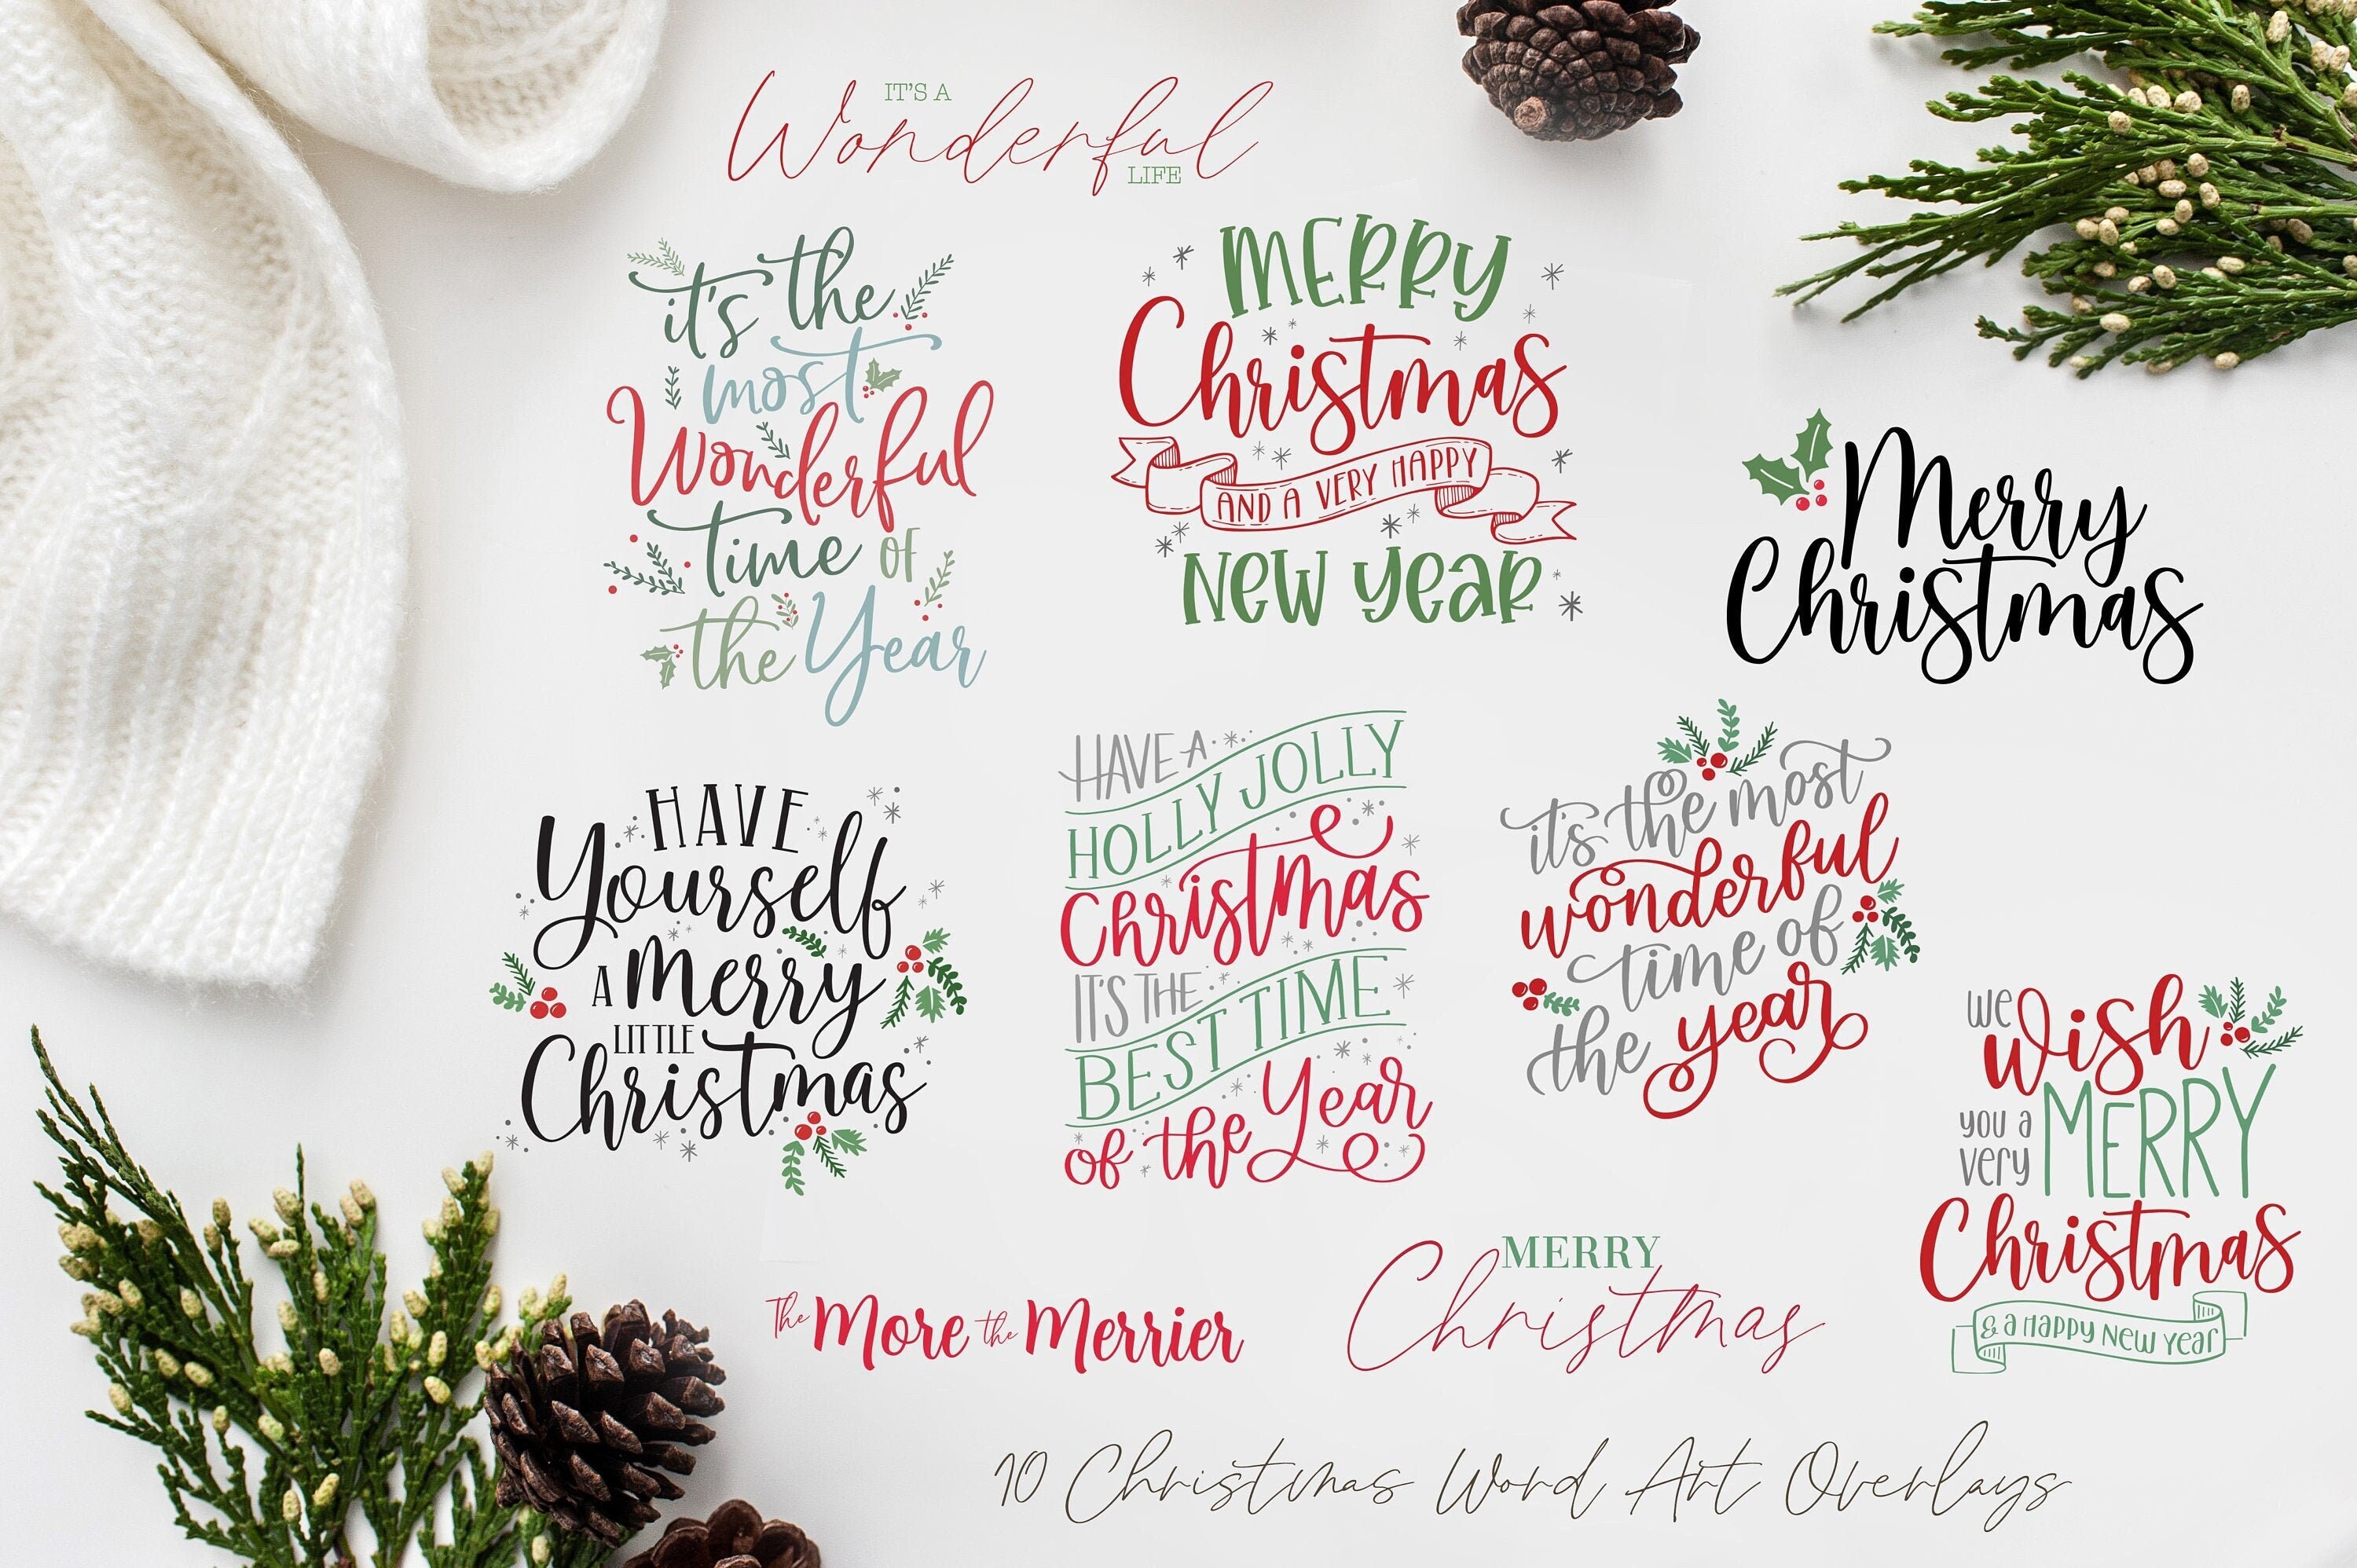 IT'S A
Wonderful
LIFE
it's the
most
Wonderful
time of
the Year
MERRY
Christmas
AND A VERY HAPPY
NEW YEAR
Merry
Christmas
HAVE
Yourself
A Merry
LITTLE
Christmas
HAVE A
HOLLY JOLLY
Christmas
IT'S THE
BEST TIME
of the Year
it's the most
wonderful
time of
the year
we
Wish
you a
very
MERRY
Christmas
& a Happy New Year
The More the Merrier
MERRY
Christmas
10 Christmas Word Art Overlays